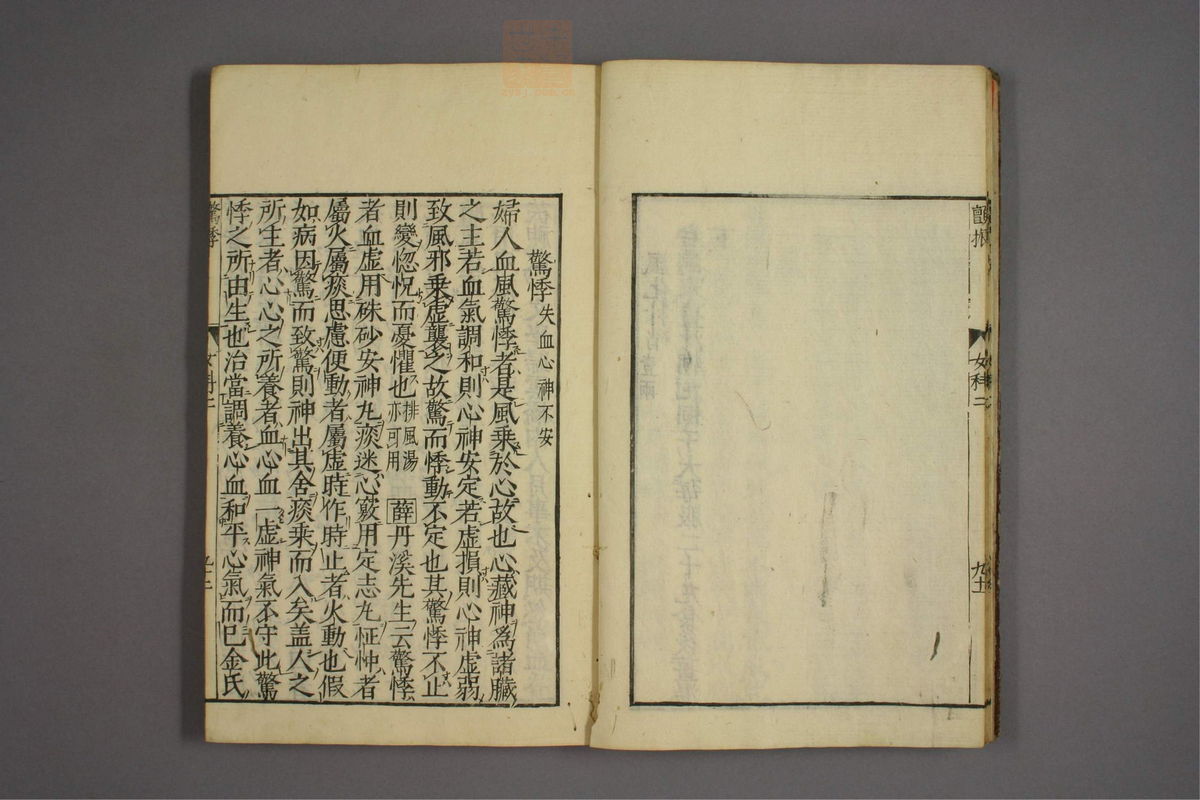 女科二
九十一
驚悸失血心神不安
婦人血風驚悸者是風乗於心故也心藏神爲諸臟
之主若血氣調和則心神安定若虚損則心神虚弱
致風邪乗虚襲之故驚而悸動不定也其驚悸不止
則變惚怳而憂懼也排風湯亦可用薛丹溪先生云驚悸
者血虚用硃砂安神丸痰迷心竅用定志丸怔忡者
屬火屬痰思慮便動者屬虚時作時止者火動也假
如病因驚而致驚則神出其舍痰乗而入矣盖人之
所主者心心之所養者血心血一虚神氣不守此驚
悸之所由生也治當調養心血和平心氣而巳金氏
驚悸
女科二